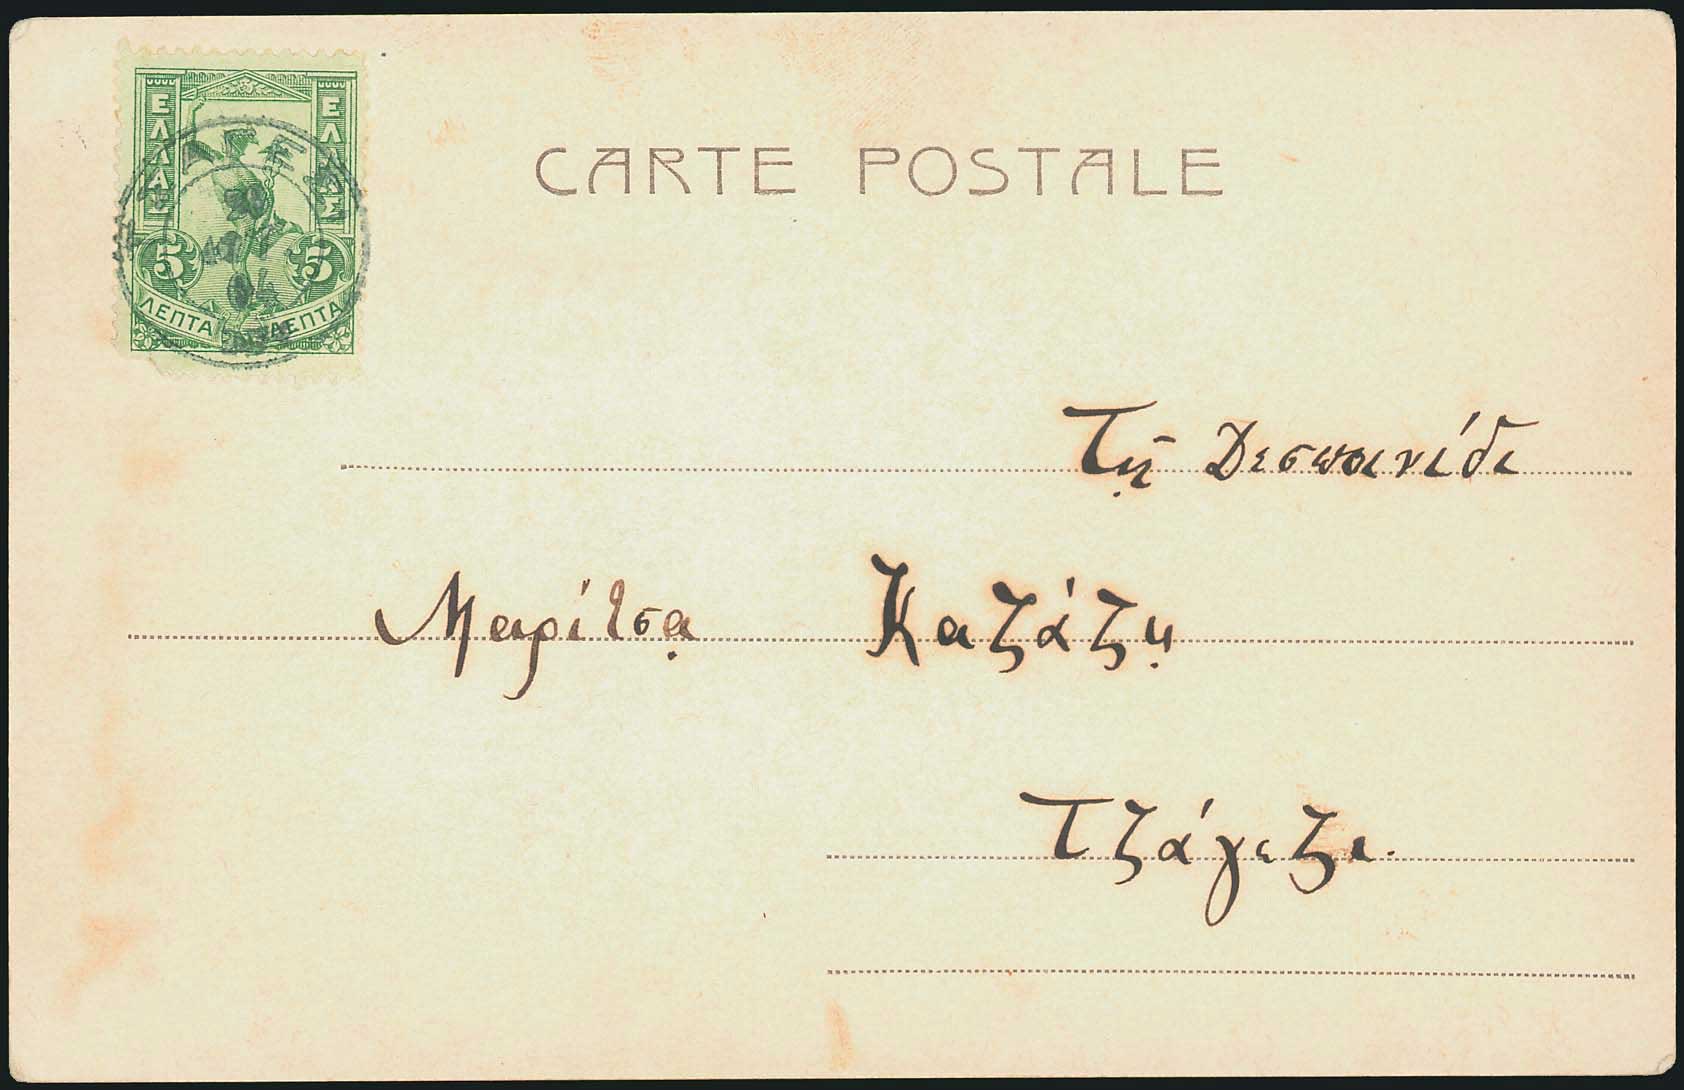 ΕΛΛΑΣ ΕΛΛΑΣ
5 5
ΛΕΠΤΑ ΛΕΠΤΑ
CARTE POSTALE
Τῇ Δεσποινίδι
Μαρίτσᾳ Καζάζῃ
Τζάγεζι.